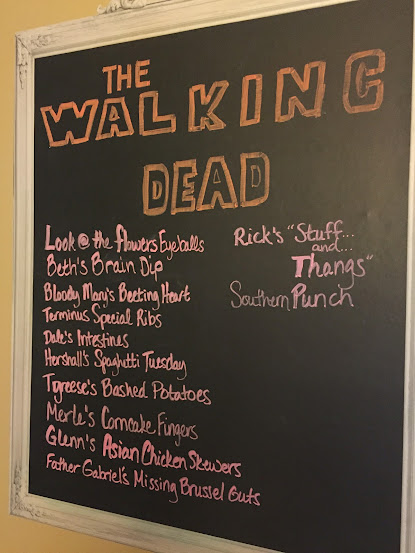 THE
WALKING
DEAD
Look @ the flowers Eyeballs
Beth's Brain Dip
Bloody Mary's Beeting Heart
Terminus Special Ribs
Dale's Intestines
Hershall's Spaghetti Tuesday
Tyreese's Bashed Potatoes
Merle's Corncake Fingers
Glenn's Asian Chicken Skewers
Father Gabriel's Missing Brussel Guts
Rick's "Stuff...
and...
Thangs"
Southern Punch